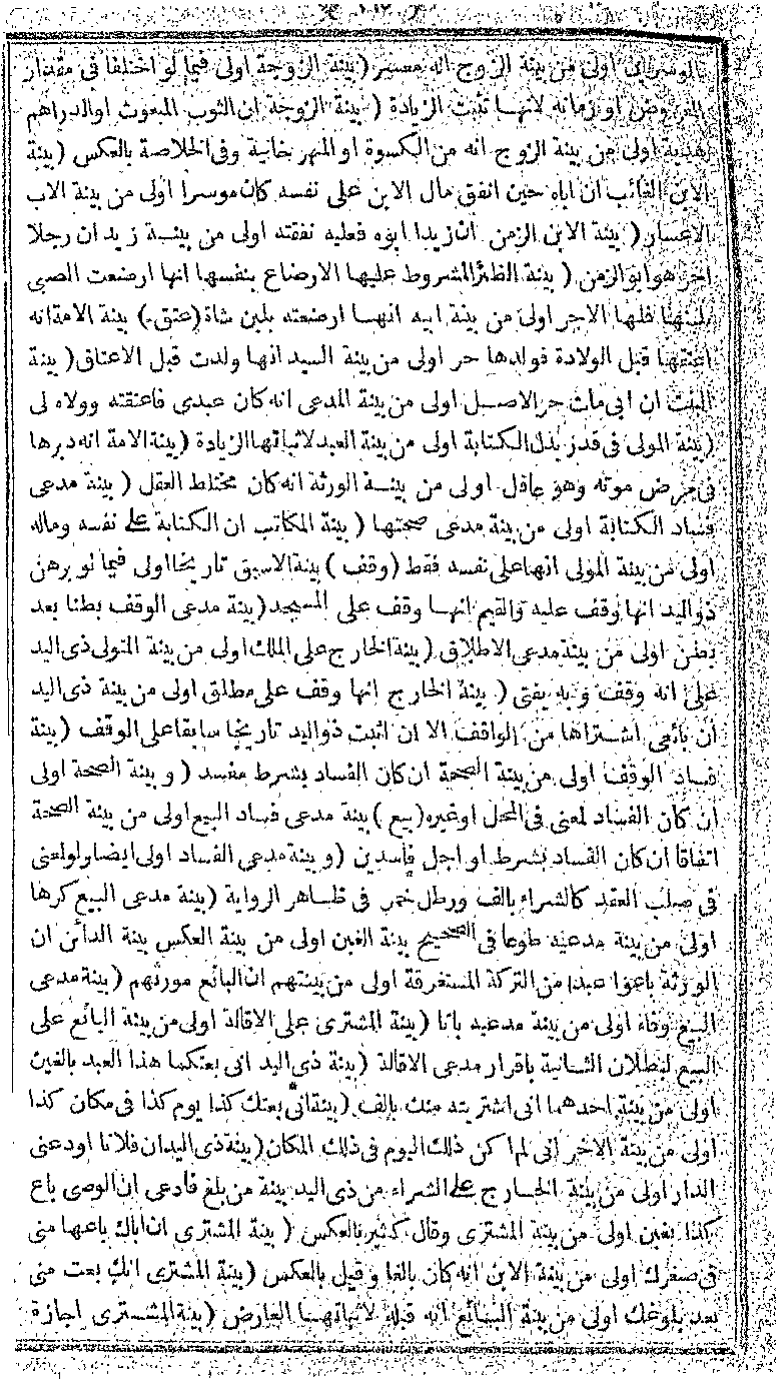 اولى من بينة الزوج انه معسر (بينة الزوجة اولى فيما لو اختلفا في مقدار
او زمانه لانها تثبت الزيادة (بينة الزوجة ان الثوب المبعوث اوالدراهم
هدية اولى من بينة الزوج انه من الكسوة او المهر خانية وفى الخلاصة بالعكس (بينة
الابن الغائب ان اباه حين انفق مال الابن على نفسه كان موسرا اولى من بينة الاب
الاعسار (بينة الابن الزمن ان زيدا ابوه فعليه نفقته اولى من بينة زيد ان رجلا
اخر هو ابو الزمن (بينة الظئر المشروط عليها الارضاع بنفسها انها ارضعت الصبى
بلبنها فلها الاجر اولى من بينة ابيه انها ارضعته بلبن شاة (عتق) بينة الامة انه
اعتقها قبل الولادة فولدها حر اولى من بينة السيد انها ولدت قبل الاعتاق (بينة
البنت ان ابى مات حر الاصل اولى من بينة المدعى انه كان عبدى فاعتقته وولاه لى
(بينة المولى فى قدر بدل الكتابة اولى من بينة العبد لاثباتها الزيادة (بينة الامة انه دبرها
فى مرض موته وهو عاقل اولى من بينة الورثة انه كان مختلط العقل (بينة مدعى
فساد الكتابة اولى من بينة مدعى صحتها (بينة المكاتب ان الكتابة على نفسه وماله
اولى من بينة المولى انها على نفسه فقط (وقف) بينة الاسبق تاريخا اولى فيما لو برهن
ذو اليد انها وقف عليه والقيم انها وقف على المسجد (بينة مدعى الوقف بطنا بعد
بطن اولى من بينة مدعى الاطلاق (بينة الخارج على الملك اولى من بينة المتولى ذى اليد
على انه وقف وبه يفتى (بينة الخارج انها وقف على مطلق اولى من بينة ذى اليد
ان بائعى اشتراها من الواقف الا ان اثبت ذو اليد تاريخا سابقا على الوقف (بينة
فساد الوقف اولى من بينة الصحة ان كان الفساد بشرط مفسد (وبينة الصحة اولى
ان كان الفساد لمعنى فى المحل اوغيره (بيع) بينة مدعى فساد البيع اولى من بينة الصحة
اتفاقا ان كان الفساد بشرط او اجل فاسدين (وبينة مدعى الفساد اولى ايضا ولو لمعنى
فى صلب العقد كالشراء بالف ورطل خمر فى ظاهر الرواية (بينة مدعى البيع كرها
اولى من بينة مدعيه طوعا فى الصحيح بينة الغبن اولى من بينة العكس بينة الدائن ان
الورثة باعوا عبدا من التركة المستغرقة اولى من بينتهم ان البائع مورثهم (بينة مدعى
البيع وفاء اولى من بينة مدعيه باتا (بينة المشترى على الاقالة اولى من بينة البائع على
البيع لبطلان الثانية باقرار مدعى الاقالة (بينة ذى اليد انى بعتكما هذا العبد بالفين
اولى من بينة احدهما انى اشتريته منك بالف (بينة انى بعتك كذا يوم كذا فى مكان كذا
اولى من بينة الاخر انى لم اكن ذلك اليوم فى ذلك المكان (بينة ذى اليد ان فلانا اودعنى
الدار اولى من بينة الخارج على الشراء من ذى اليد بينة من بلغ فادعى ان الوصى باع
كذا بغبن اولى من بينة المشترى وقال كثير بالعكس (بينة المشترى ان اباك باعها منى
فى صغرك اولى من بينة الابن انه كان بالغا وقيل بالعكس (بينة المشترى انك بعت منى
بعد بلوغك اولى من بينة البائع انه قبله لاثباتها العارض (بينة المشترى اجازة